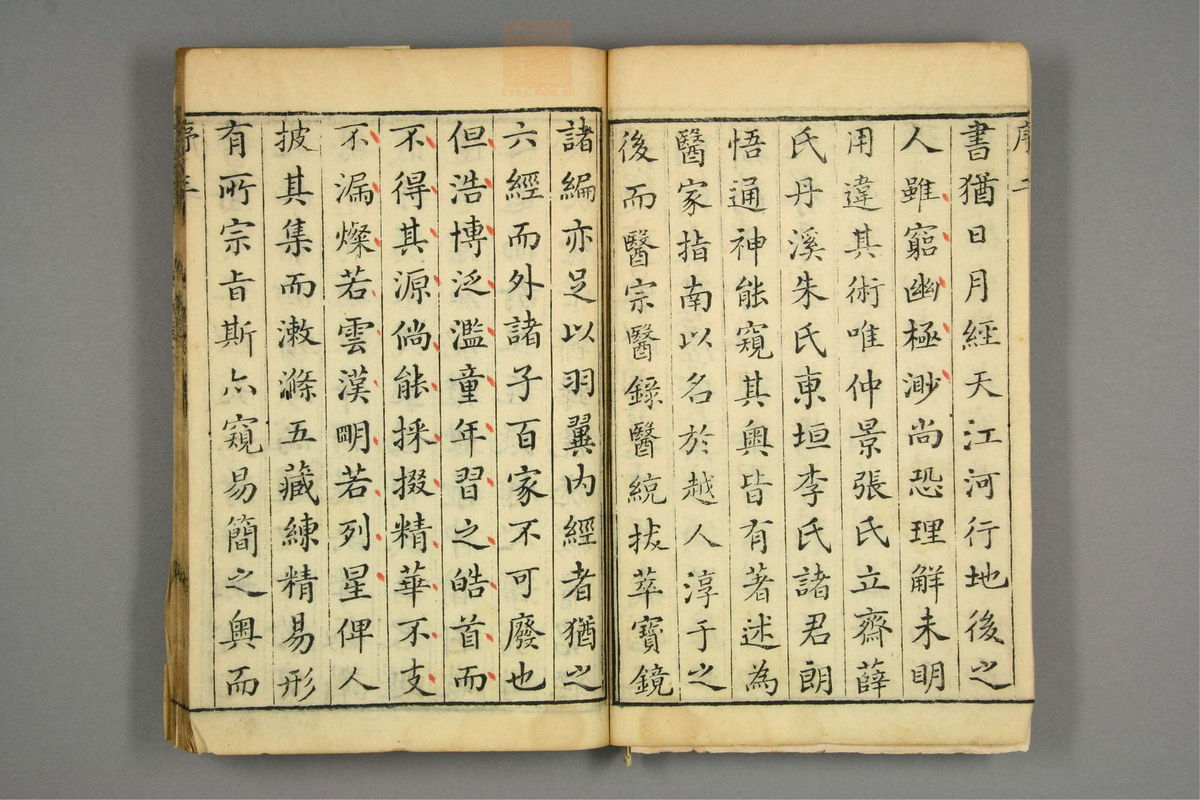 序 二
書猶日月經天江河行地後之
人雖窮幽極渺尚恐理解未明
用違其術唯仲景張氏立齋薛
氏丹溪朱氏東垣李氏諸君朗
悟通神能窺其奥皆有著述為
醫家指南以名於越人淳于之
後而醫宗醫錄醫統拔萃寶鏡
諸編亦足以羽翼内經者猶之
六經而外諸子百家不可廢也
但浩博泛濫童年習之皓首而
不得其源倘能採掇精華不支
不漏燦若雲漢明若列星俾人
披其集而漱滌五藏練精易形
有所宗旨斯亦窺易簡之奥而
序 三